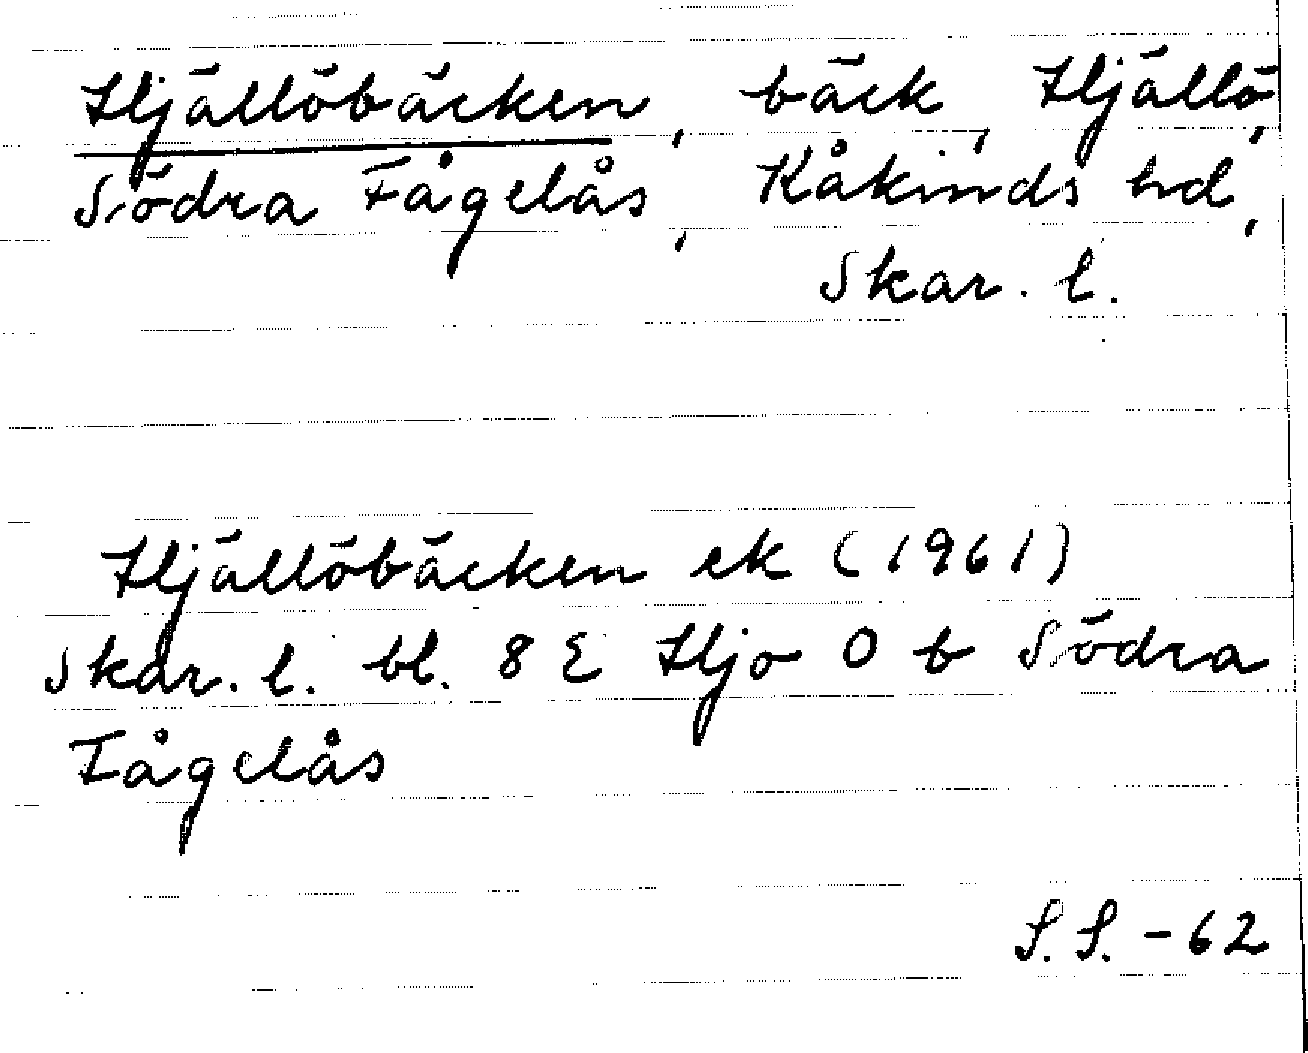 Hjällöbäcken, bäck, Hjällö,
Södra Fågelås, Kåkinds hd,
Skar. l.
Hjällöbäcken ek (1961)
Skar. l. bl. 8 E Hjo 0 b Södra
Fågelås
S.S. -62